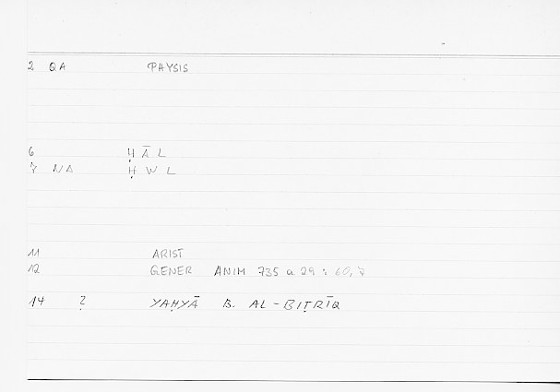 2 QA PHYSIS
6 ḤĀL
7 NA ḤWL
11 ARIST
12 GENER ANIM 735 a 29 : 60,7
14 ? YAḤYĀ B. AL-BIṬRĪQ